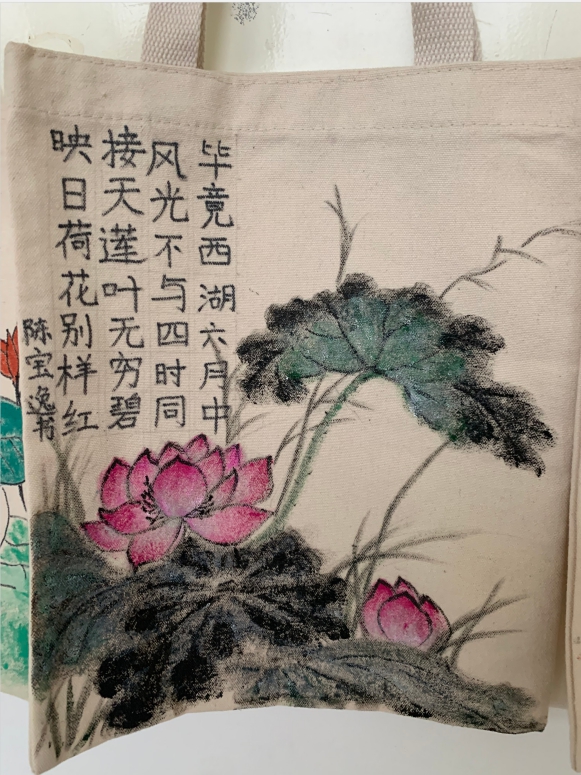 毕竟西湖六月中
风光不与四时同
接天莲叶无穷碧
映日荷花别样红
陈宝逸书